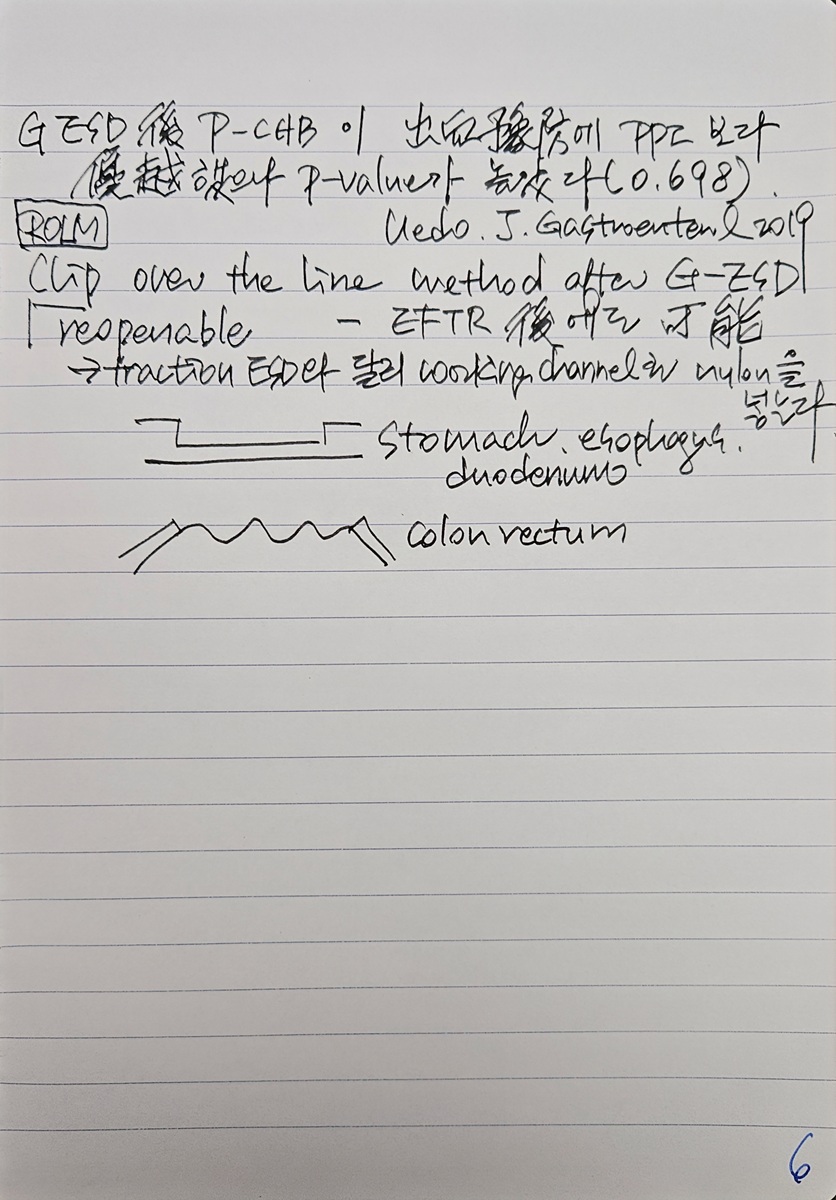 G ESD 後 P-CAB 이 出血豫防에 PPI 보다
優越했으나 P-value가 높았다(0.698).
ROLM Uedo. J. Gastroenterol 2019
Clip over the line method after G-ESD
reopenable - EFTR 後에도 可能
→ traction ESD와 달리 working channel로 nylon을
넣는다
stomach. esophagus.
duodenum
colon rectum
6